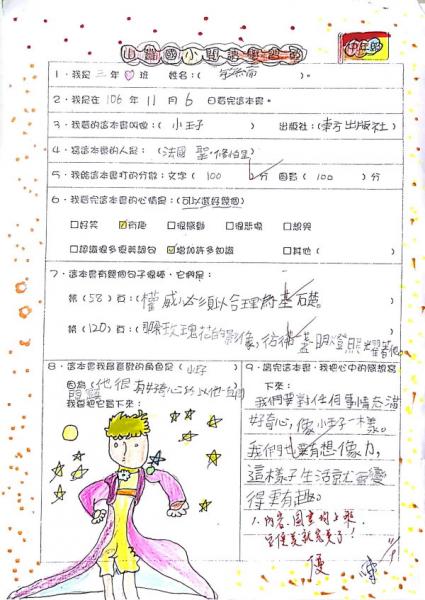 中年級
1・我是三年♡班 姓名:( )。
2・我是在106年11月6日看完這本書。
3・我看的這本書叫做:(小王子) 出版社:(東方出版社)
4・寫這本書的人是:(法國 聖・修伯里)
5・我給這本書打的分數:文字(100)分 圖畫(100)分
6・我看完這本書的心情是:(可以選好幾個)
□好笑 ☑有趣 □很感動 □很悲傷 □想哭
□認識很多很美語句 ☑增加許多知識 □其他( )
7・這本書有幾個句子很棒,它們是:
第(58)頁:權威必須以合理為基礎
第(120)頁:那玫瑰花的影像,彷彿一盞明燈照耀著他。
8・這本書我最喜歡的角色是(小王子)
因為(他很有好奇心
問題
我要把它畫下來:
9・讀完這本書,我把心中的感想寫
下來:
我們要對任何事情充滿
好奇心,像小王子一樣。
我們也要有想像力,
這樣子生活就會變
得更有趣。
1.內容、圖畫
優